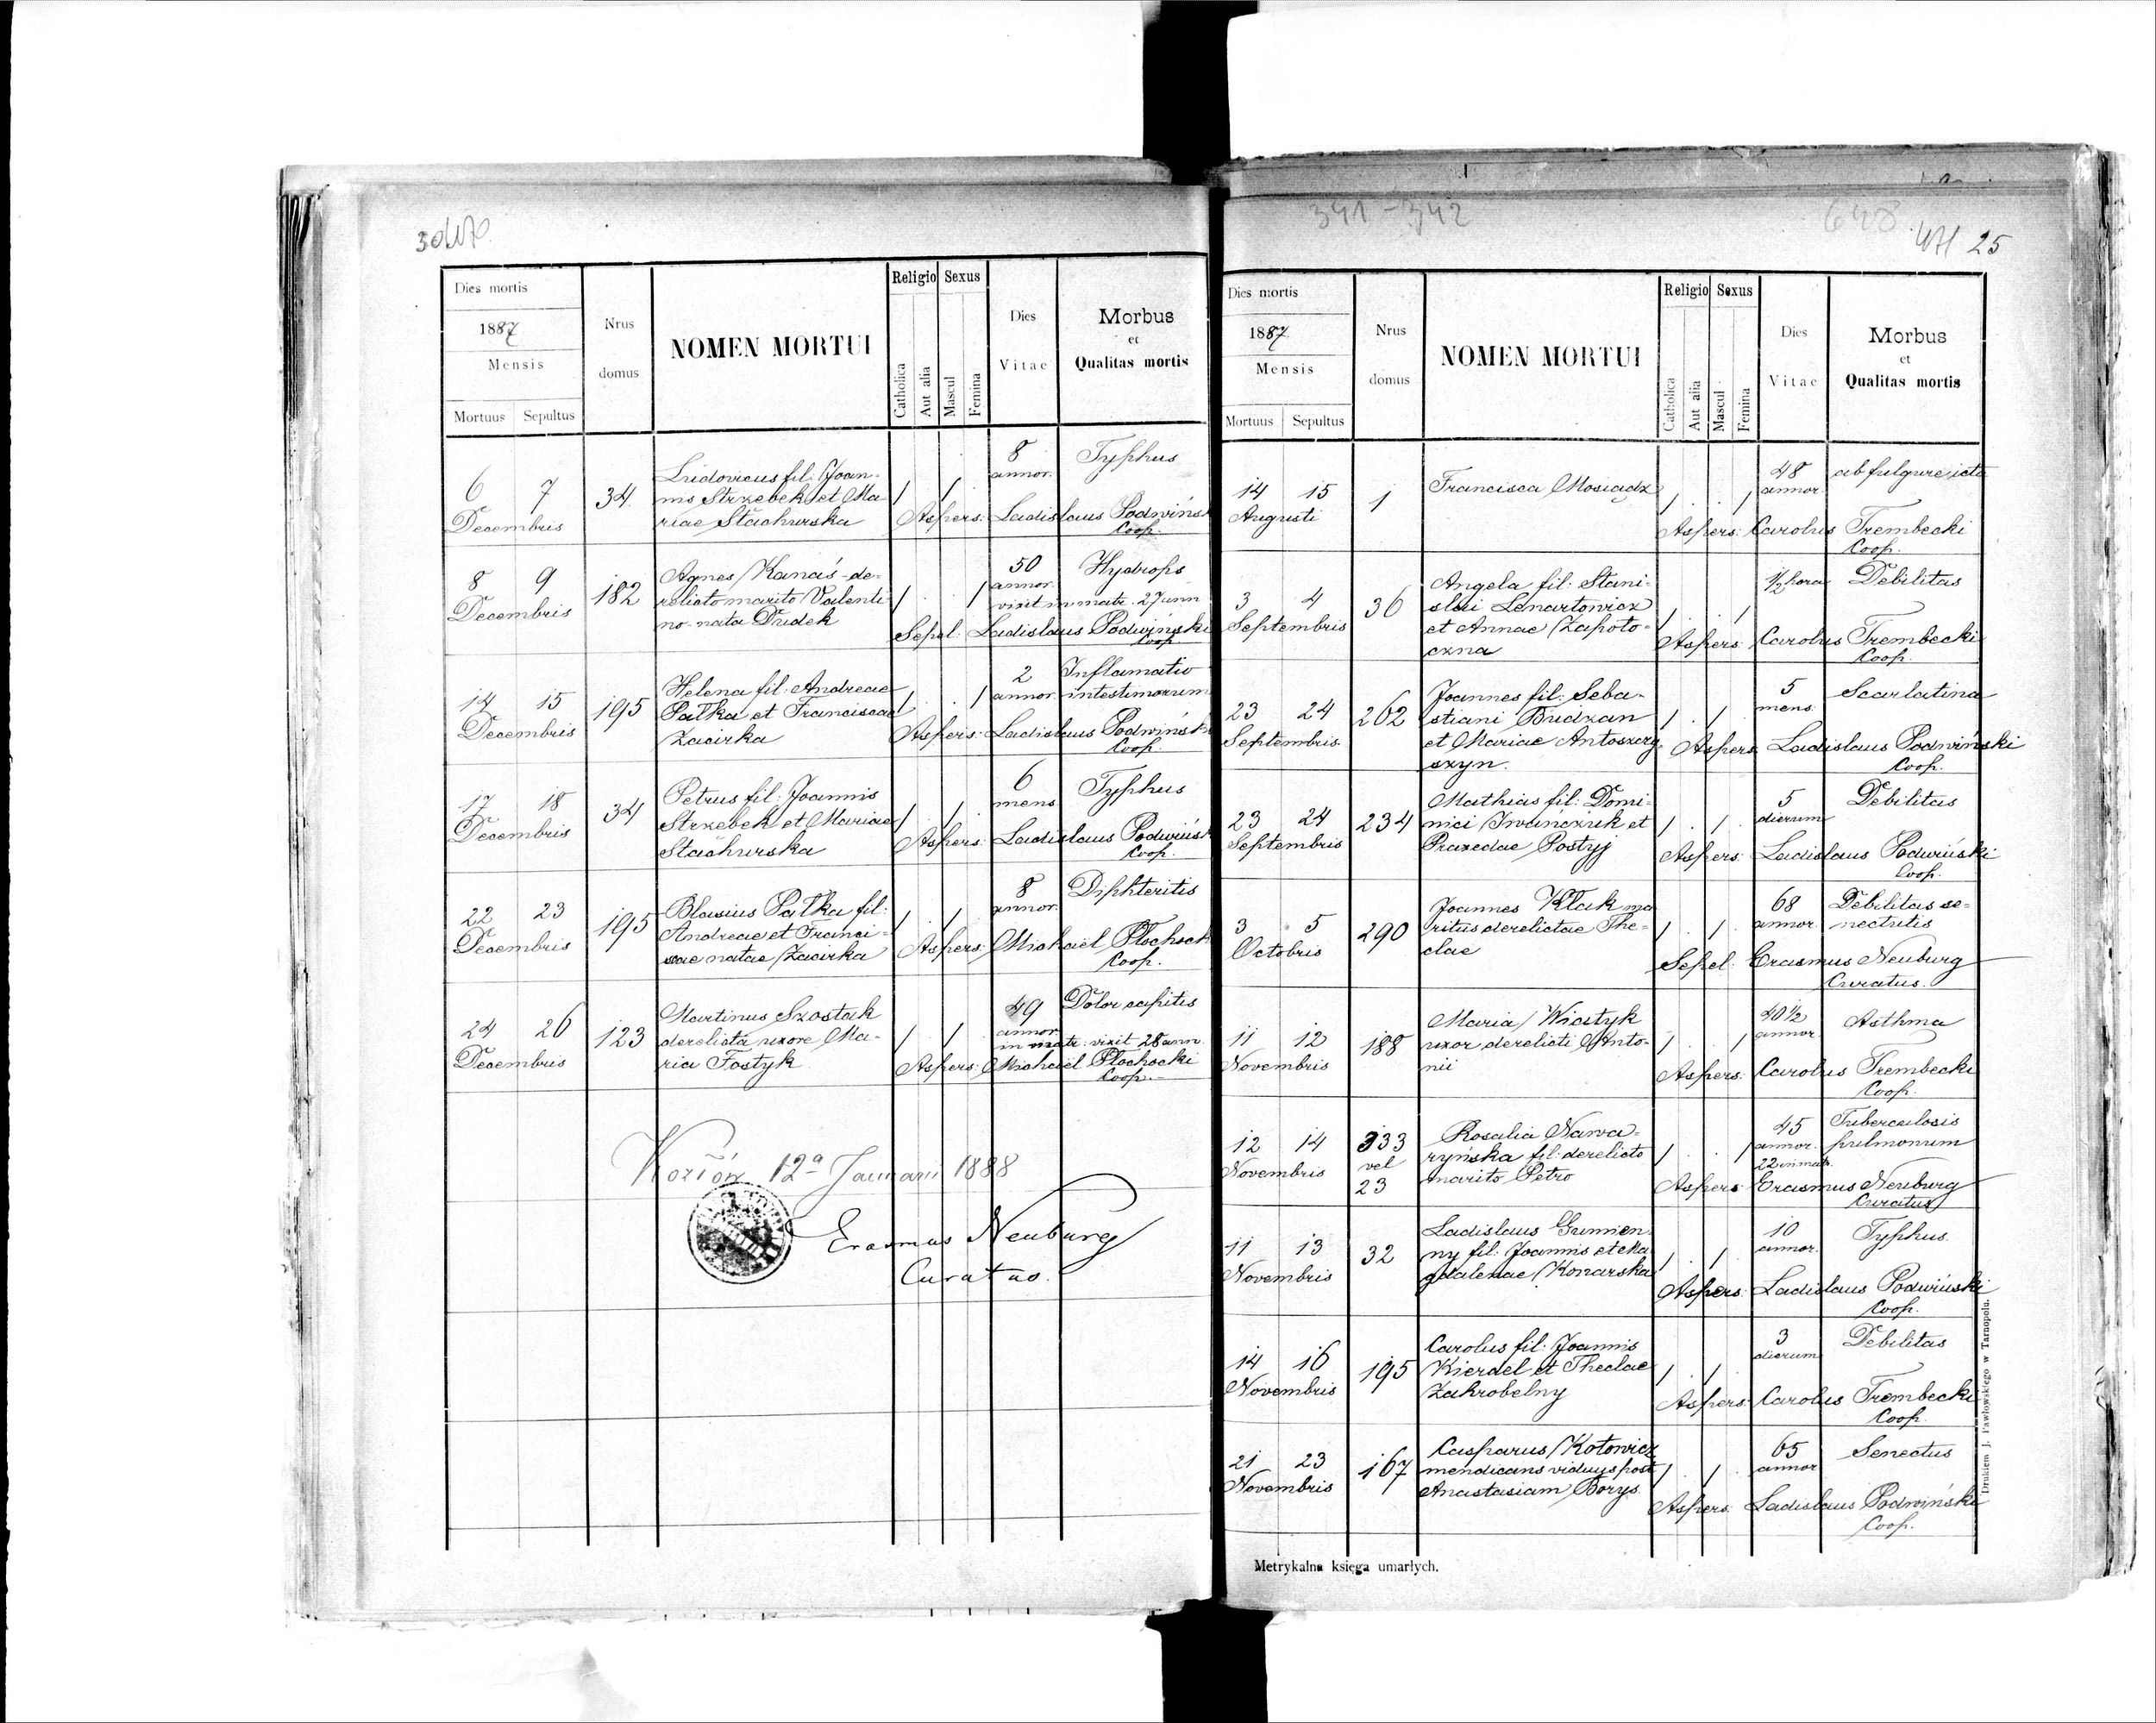 470
Dies mortis
1887
Mensis
Mortuus Sepultus
Nrus
domus
NOMEN MORTUI
Religio Sexus
Catholica
Aut alia
Mascul
Femina
Dies
Vitae
Morbus
et
Qualitas mortis
6 7
Decembris
34.
Ludovicus fil: Joan-
nis Strzebek et Ma-
riae Stachurska
8
annor.
Typhus
Aspers: Ladislaus Podwińsk
Coop.
8 9
Decembris
182
Agnes Kanaś de-
relicto marito Valenti
no nata Dudek
50
annor.
Hydrops
vixit in matr. 27 ann
Sepel: Ladislaus Podwiński
Coop
14 15
Decembris
195
Helena fil: Andreae
Pałka et Franciscae
Zacirka
2
annor.
Inflamatio
intestinorum
Aspers: Ladislaus Podwińsk
Coop.
17 18
Decembris
34
Petrus fil: Joannis
Strzebek et Mariae
Stachurska
6
mens
Typhus
Aspers: Ladislaus Podwińsk
Coop.
22 23
Decembris
195
Blasius Pałka fil:
Andreae et Franci-
scae natae Zacirka
8
annor.
Diphteritis
Aspers: Michael Płochock
Coop.
24 26
Decembris
123
Martinus Szostak
derelicta uxore Ma-
ria Fostyk
49
annor
Dolor capitis
in matr: vixit 28 ann.
Aspers: Michael Płochocki
Coop.
12a Januarii 1888
Erasmus Neuburg
Curatus.
341-342
648
471 25
Dies mortis
1887.
Mensis
Mortuus Sepultus
Nrus
domus
NOMEN MORTUI
Religio Sexus
Catholica
Aut alia
Mascul
Femina
Dies
Vitae
Morbus
et
Qualitas mortis
14 15
Augusti
1
Francisca Mosiądz
48
annor.
ab fulgure icta
Aspers: Carolus Trembecki
Coop.
3 4
Septembris
36
Angela fil: Stani-
slai Lenartowicz
et Annae Zapoto-
czna
1/2 hora
Debilitas
Aspers: Carolus Trembecki
Coop.
23 24
Septembris
262
Joannes fil: Seba-
stiani Budzan
et Mariae Antoszczy-
szyn.
5
mens.
Scarlatina
Aspers Ladislaus Podwiński
Coop.
23 24
Septembris
234
Mathias fil: Domi-
nici Iwanczuk et
Praxedae Postyj
5
dierum
Debilitas
Aspers: Ladislaus Podwiński
Coop.
3 5
Octobris
290
Joannes Kłak ma
ritus derelictae The-
clae
68
annor.
Debilitas se-
nectutis
Sepel: Erasmus Neuburg
Curatus.
11 12
Novembris
188
Maria Wiastyk
uxor derelicti Anto-
nii
40 1/2
annor
Asthma
Aspers: Carolus Trembecki
Coop.
12 14
Novembris
333
vel
23
Rosalia Nawa-
ryńska fil: derelicto
marito Petro
45
annor.
22 in matr.
Tuberculosis
pulmonum
Aspers Erasmus Neuburg
Curatus
11 13
Novembris
32
Ladislaus Gumien
ny fil: Joannis et Ma
gdalenae Konarska
10
annor.
Typhus.
Aspers: Ladislaus Podwiński
Coop.
14 16
Novembris
195
Carolus fil: Joannis
Kierdel et Theclae
Zakrobelny
3
dierum
Debilitas
Aspers: Carolus Trembecki
Coop.
21 23
Novembris
167
Casparus Kotowicz
mendicans viduus post
Anastasiam Borys.
65
annor
Senectus
Aspers: Ladislaus Podwiński
Coop.
Drukiem J. Pawłowskiego w Tarnopolu.
Metrykalna księga umarłych.